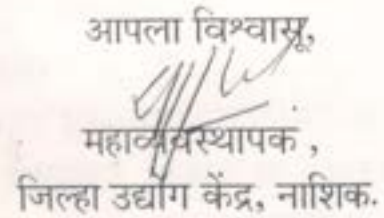 आपला विश्वासू,
महाव्यवस्थापक ,
जिल्हा उद्योग केंद्र, नाशिक.